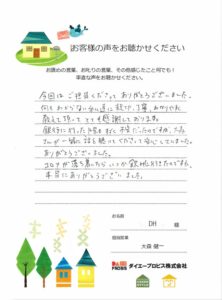 お客様の声をお聴かせください
お褒めの言葉、お叱りの言葉、その他感じたこと何でも！
率直なお声をお聴かせください。
今回はご担当くださって ありがとうございました。
何もわからない私達に親切、丁寧、わかりやすく
教えて頂いて とても感謝しております。
銀行に行った時もすごく不安だったのですが、大森
さんが一緒に話を聴いてくださって安心していました。
ありがとうございました。
コロナが落ち着いたら いつか飲みに行きたいですね。
本当にありがとうございました。
お名前
DH 様
担当営業
大森 健一
PROBIS ダイエープロビス株式会社